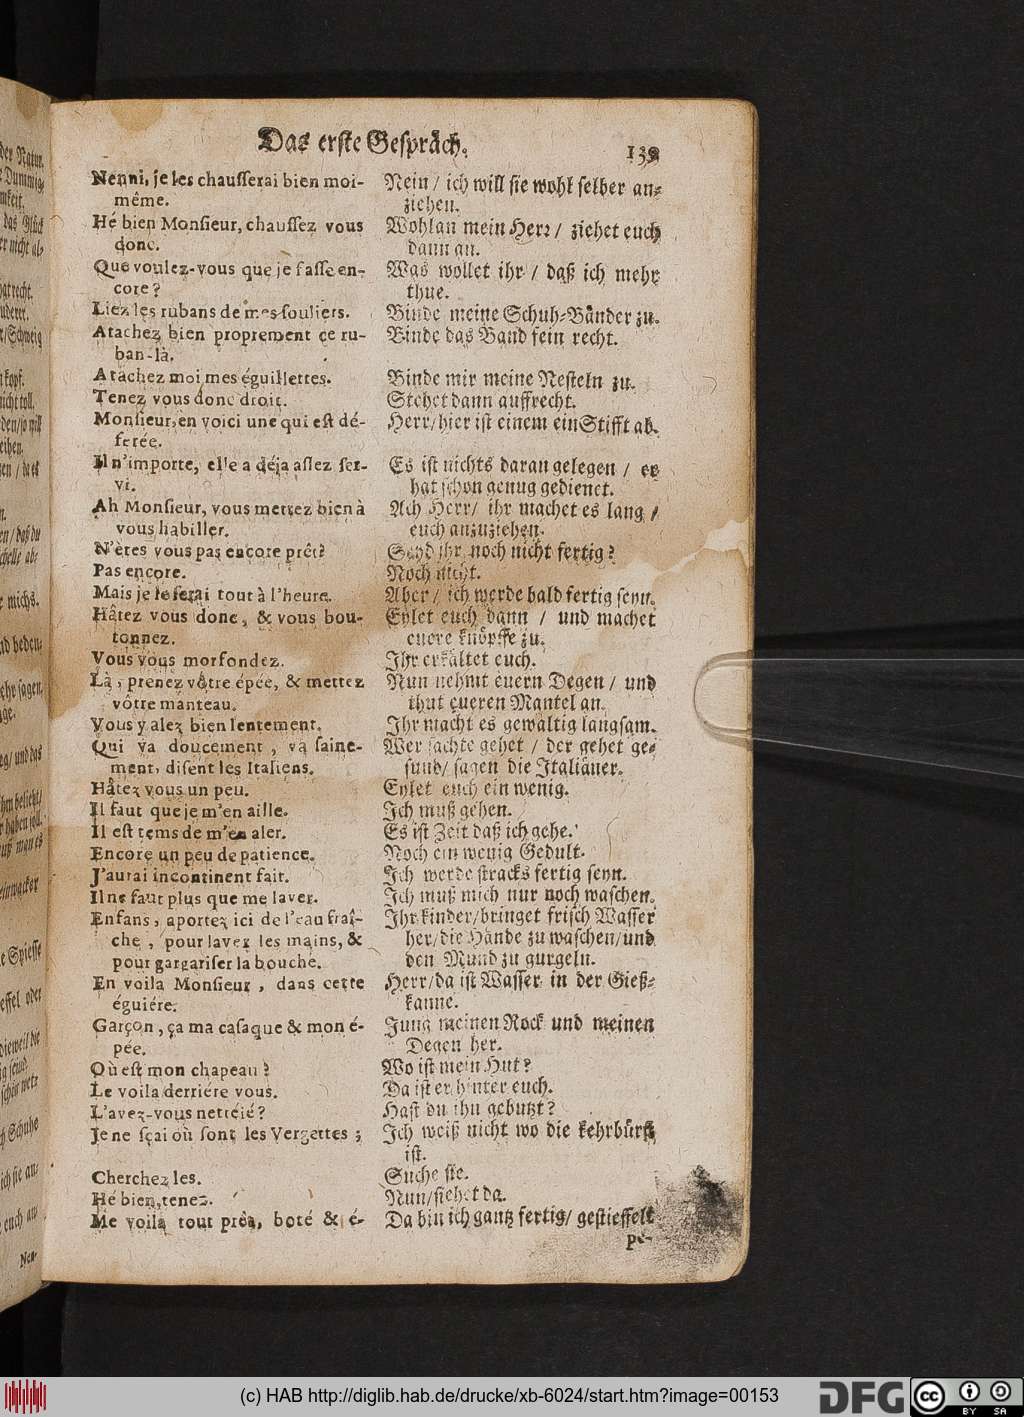 Das erste Gespräch.
139
Nenni, je les chausserai bien moi-
même.
Hé bien Monsieur, chaussez vous
donc.
Que voulez-vous que je fasse en-
core?
Liez les rubans de mes souliers.
Atachez bien proprement ce ru-
ban-là.
Atachez moi mes éguillettes.
Tenez vous donc droit.
Monsieur, en voici une qui est dé-
ferée.
Il n'importe, elle a déja assez ser-
vi.
Ah Monsieur, vous mettez bien à
vous habiller.
N'êtes vous pas encore prêt?
Pas encore.
Mais je le serai tout à l'heure.
Hâtez vous donc, & vous bou-
tonnez.
Vous vous morfondez.
Là, prenez vôtre épée, & mettez
vôtre manteau.
Vous y alez bien lentement.
Qui va doucement, va saine-
ment, disent les Italiens.
Hâtez vous un peu.
Il faut que je m'en aille.
Il est tems de m'en aler.
Encore un peu de patience.
J'aurai incontinent fait.
Il ne faut plus que me laver.
Enfans, aportez ici de l'eau fraî-
che, pour laver les mains, &
pour gargariser la bouche.
En voila Monsieur, dans cette
éguiére.
Garçon, ça ma casaque & mon é-
pée.
Où est mon chapeau?
Le voila derriére vous.
L'avez-vous nettéié?
Je ne sçai où sont les Vergettes;
Cherchez les.
Hé bien, tenez.
Me voilà tout prêt, boté & é-
Nein / ich will sie wohl selber an-
ziehen.
Wohlan mein Herr / ziehet euch
dann an.
Was wollet ihr / daß ich mehr
thue.
Binde meine Schuh-Bänder zu.
Binde das Band fein recht.
Binde mir meine Nesteln zu.
Stehet dann auffrecht.
Herr/hier ist einem ein Stifft ab.
Es ist nichts daran gelegen / er
hat schon genug gedienet.
Ach Herr/ ihr machet es lang /
euch anzuziehen.
Seyd ihr noch nicht fertig?
Noch nicht.
Aber / ich werde bald fertig seyn.
Eylet euch dann / und machet
euere knöpffe zu.
Ihr erkältet euch.
Nun nehmt euern Degen / und
thut eueren Mantel an.
Ihr macht es gewaltig langsam.
Wer sachte gehet / der gehet ge-
sund/ sagen die Italiäner.
Eylet euch ein wenig.
Ich muß gehen.
Es ist Zeit daß ich gehe.
Noch ein wenig Gedult.
Ich werde stracks fertig seyn.
Ich muß mich nur noch waschen.
Ihr kinder/bringet frisch Wasser
her/die Hände zu waschen/und
den Mund zu gurgeln.
Herr/da ist Wasser in der Gieß-
kanne.
Jung meinen Rock und meinen
Degen her.
Wo ist mein Hut?
Da ist er hinter euch.
Hast du ihn gebutzt?
Ich weiß nicht wo die kehrbürst
ist.
Suche sie.
Nun/siehet da.
Da bin ich gantz fertig/ gestieffelt
pe-
(c) HAB http://diglib.hab.de/drucke/xb-6024/start.htm?image=00153
DFG
cc
BY SA